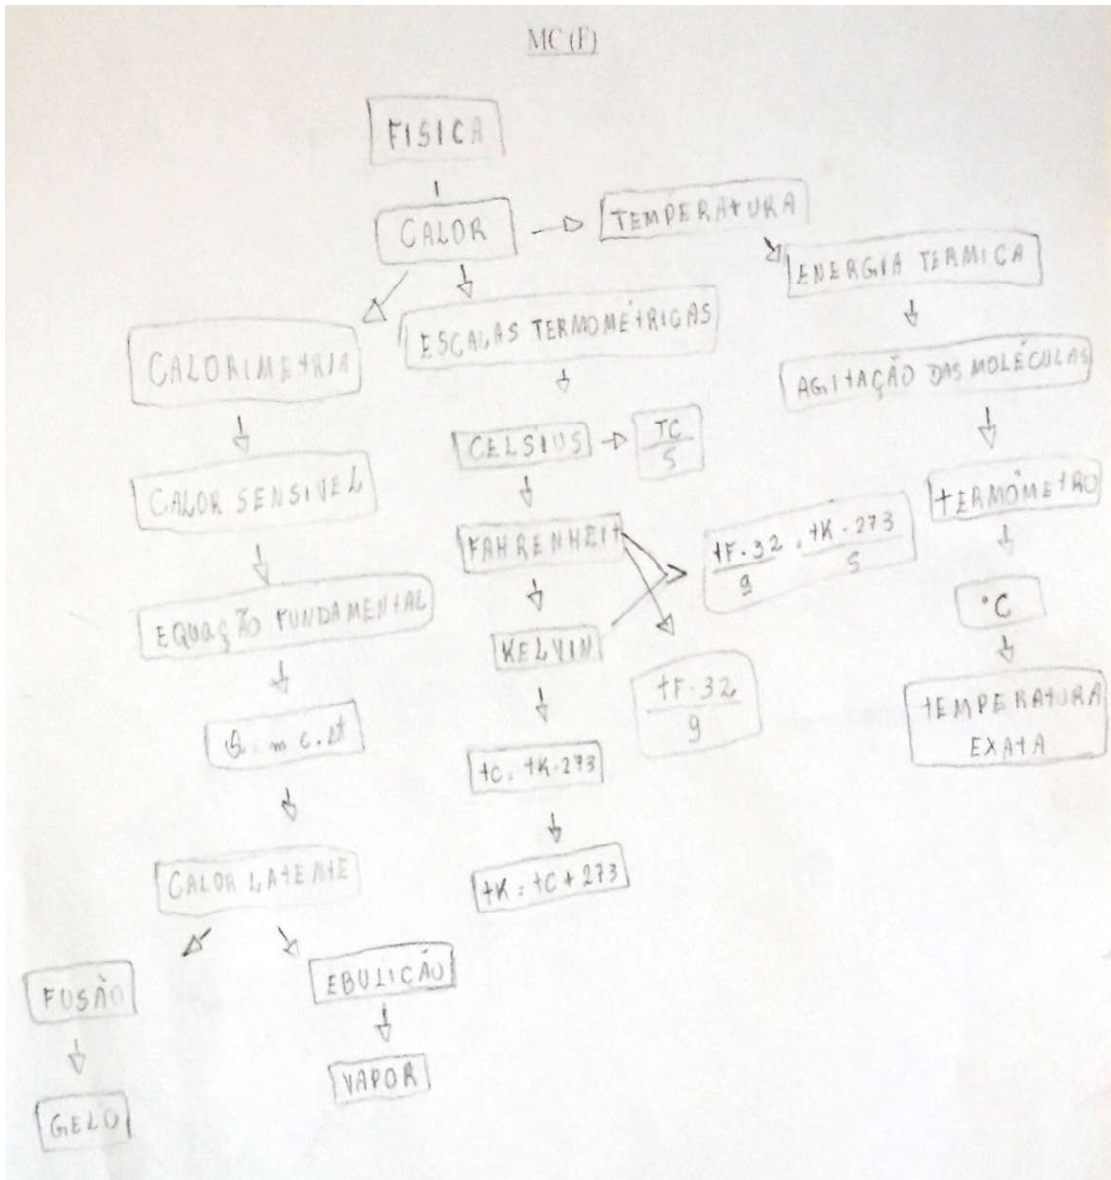 MC (F)
FISICA
CALOR
TEMPERATURA
ENERGIA TERMICA
AGITAÇÃO DAS MOLÉCULAS
TERMÔMETRO
°C
TEMPERATURA
EXATA
ESCALAS TERMOMÉTRICAS
CELSIUS
TC
5
FAHRENHEIT
tF-32 = tK-273
9 5
tF-32
9
KELVIN
tC = tK-273
tK = tC + 273
CALORIMETRIA
CALOR SENSIVEL
EQUAÇÃO FUNDAMENTAL
Q = m c . Δt
CALOR LATENTE
FUSÃO
GELO
EBULICÃO
VAPOR